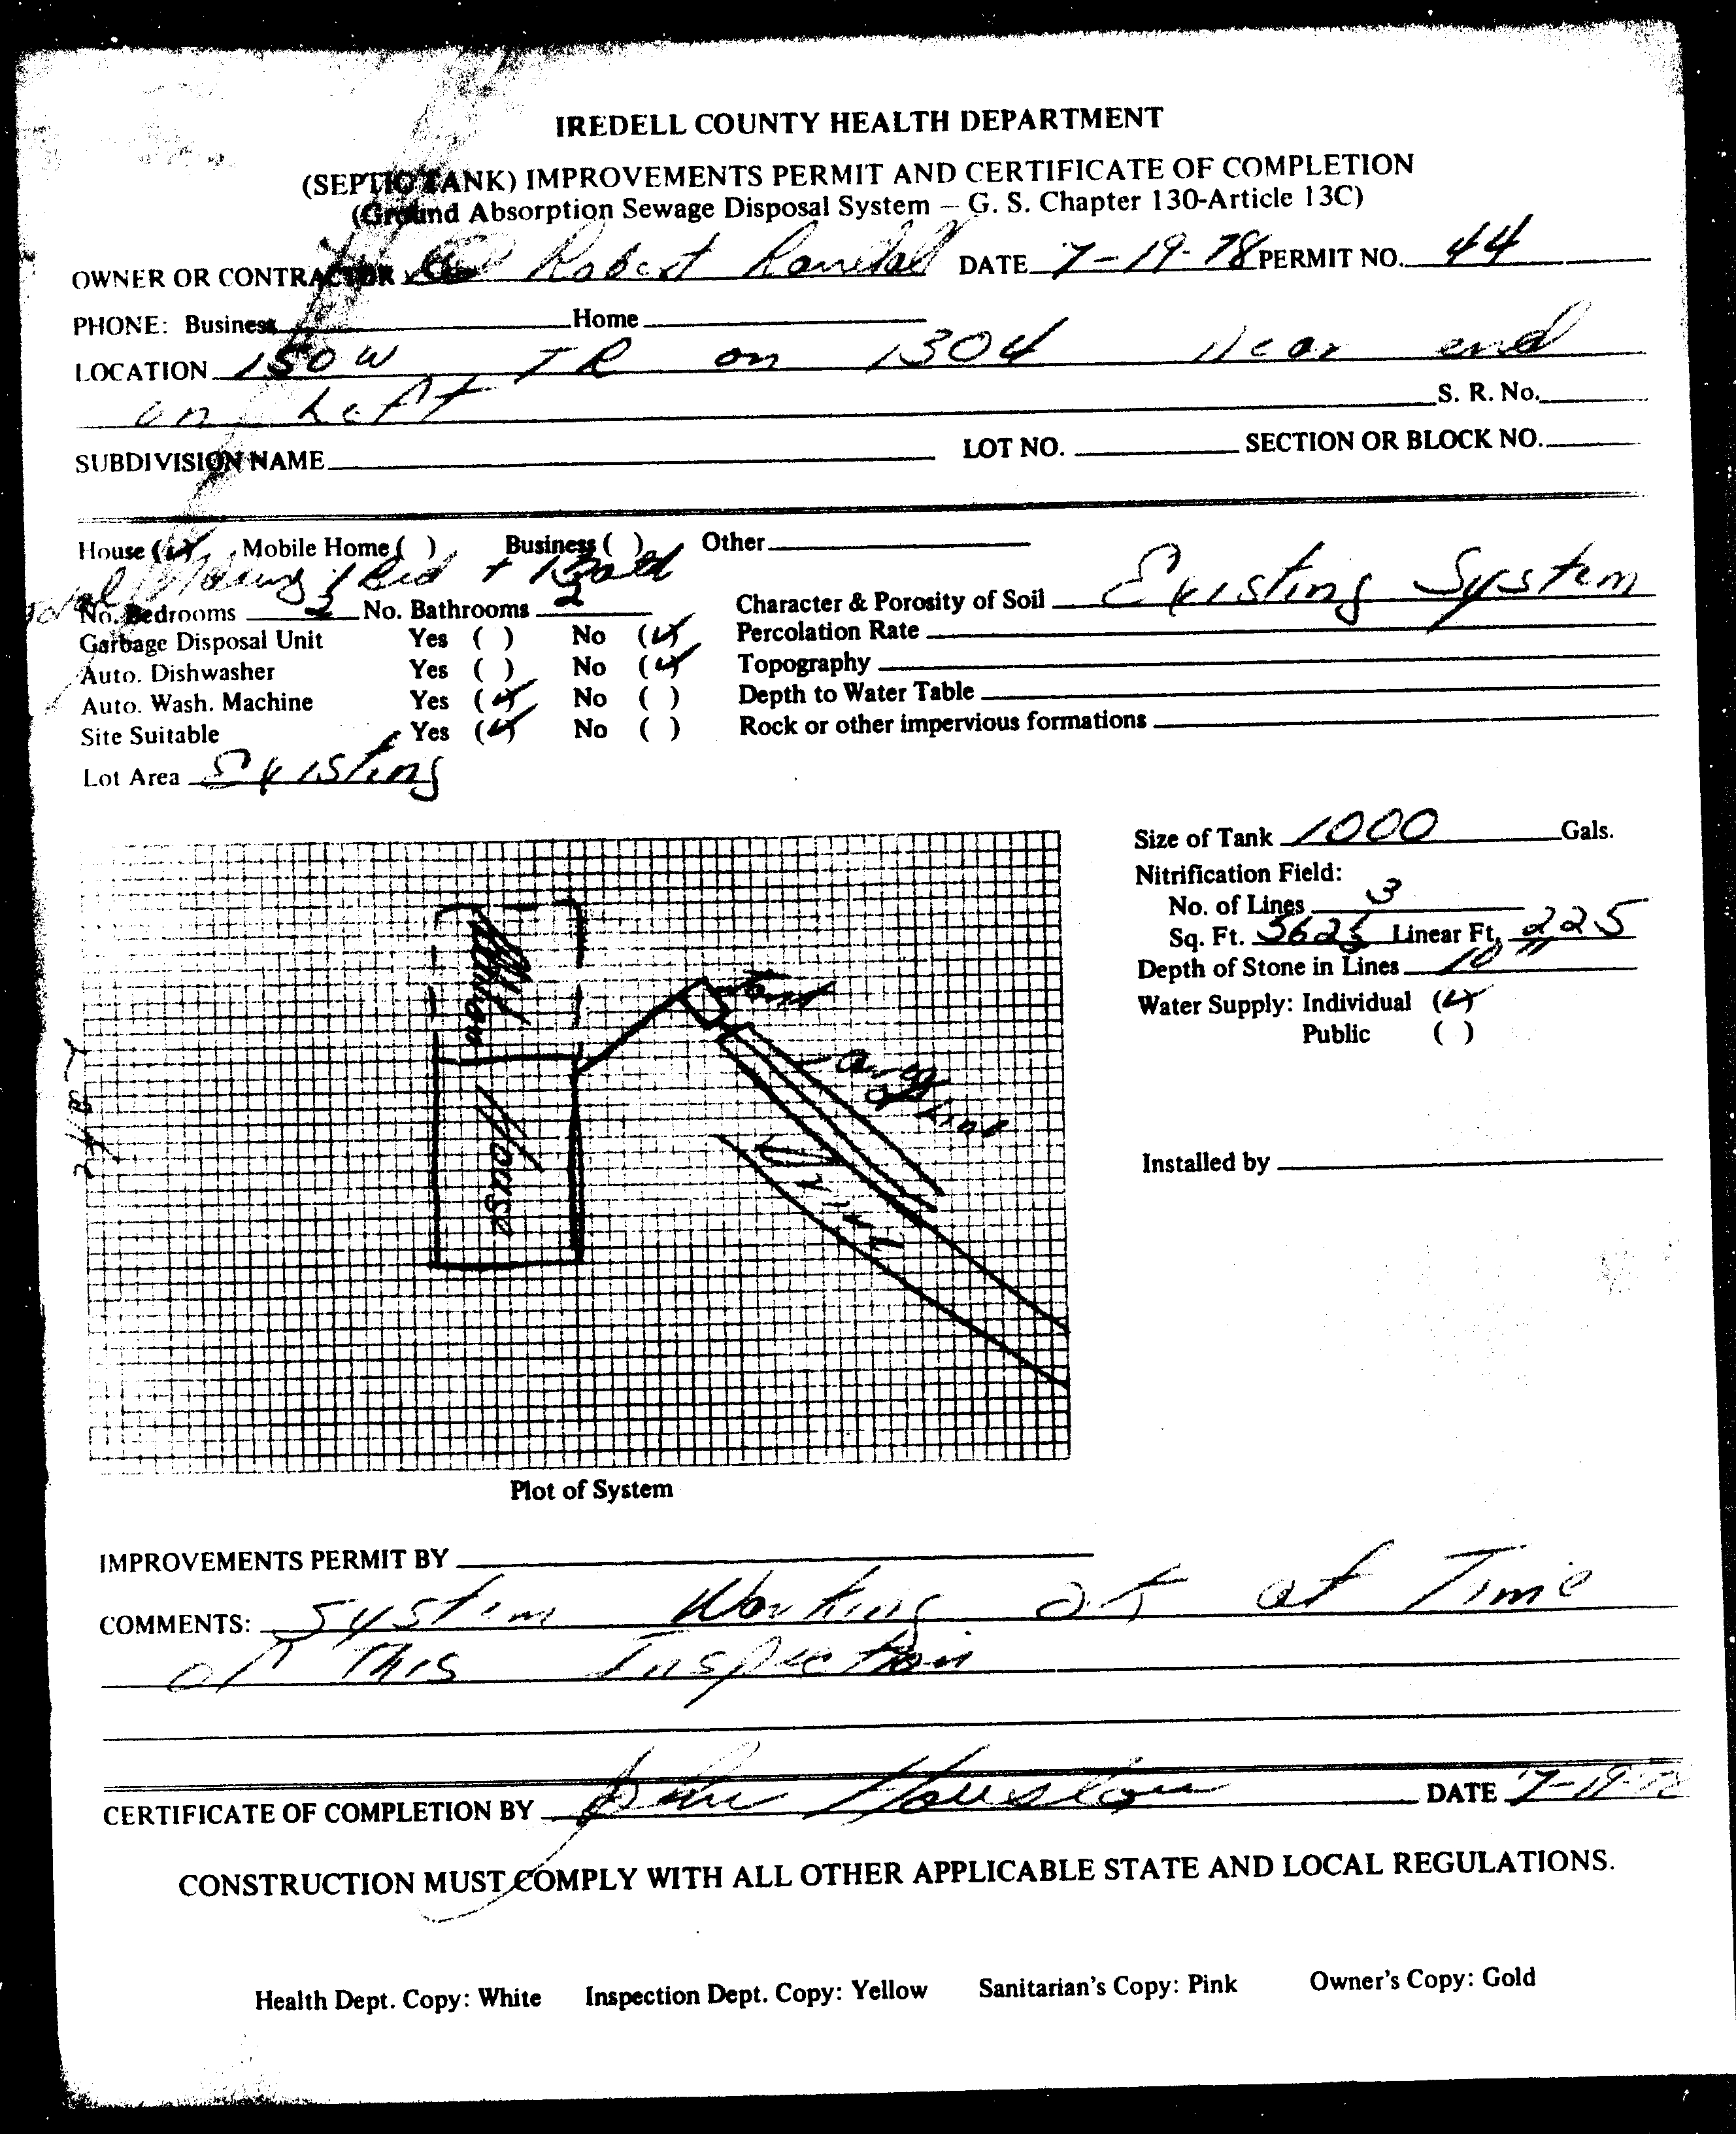 IREDELL COUNTY HEALTH DEPARTMENT
(SEPTIC TANK) IMPROVEMENTS PERMIT AND CERTIFICATE OF COMPLETION
(Ground Absorption Sewage Disposal System — G. S. Chapter 130-Article 13C)
OWNER OR CONTRACTOR Robert DATE 7-19-78 PERMIT NO. 44
PHONE: Business Home
LOCATION 150 W TR on 1304 Near end
on Left S. R. No.
SUBDIVISION NAME LOT NO. SECTION OR BLOCK NO.
House (✓) Mobile Home ( ) Business ( ) Other
1 Bed + 1 Bath
No. Bedrooms No. Bathrooms 2 Character & Porosity of Soil Existing System
Garbage Disposal Unit Yes ( ) No (✓) Percolation Rate
Auto. Dishwasher Yes ( ) No (✓) Topography
Auto. Wash. Machine Yes (✓) No ( ) Depth to Water Table
Site Suitable Yes (✓) No ( ) Rock or other impervious formations
Lot Area Existing
Size of Tank 1000 Gals.
Nitrification Field:
No. of Lines 3
Sq. Ft. Linear Ft. 225
Depth of Stone in Lines 10"
Water Supply: Individual (✓)
Public ( )
Installed by
Addition
House
Line
Plot of System
IMPROVEMENTS PERMIT BY
COMMENTS: System Working ok at Time
of This Inspection
CERTIFICATE OF COMPLETION BY John Houston DATE 7-19-78
CONSTRUCTION MUST COMPLY WITH ALL OTHER APPLICABLE STATE AND LOCAL REGULATIONS.
Health Dept. Copy: White Inspection Dept. Copy: Yellow Sanitarian's Copy: Pink Owner's Copy: Gold